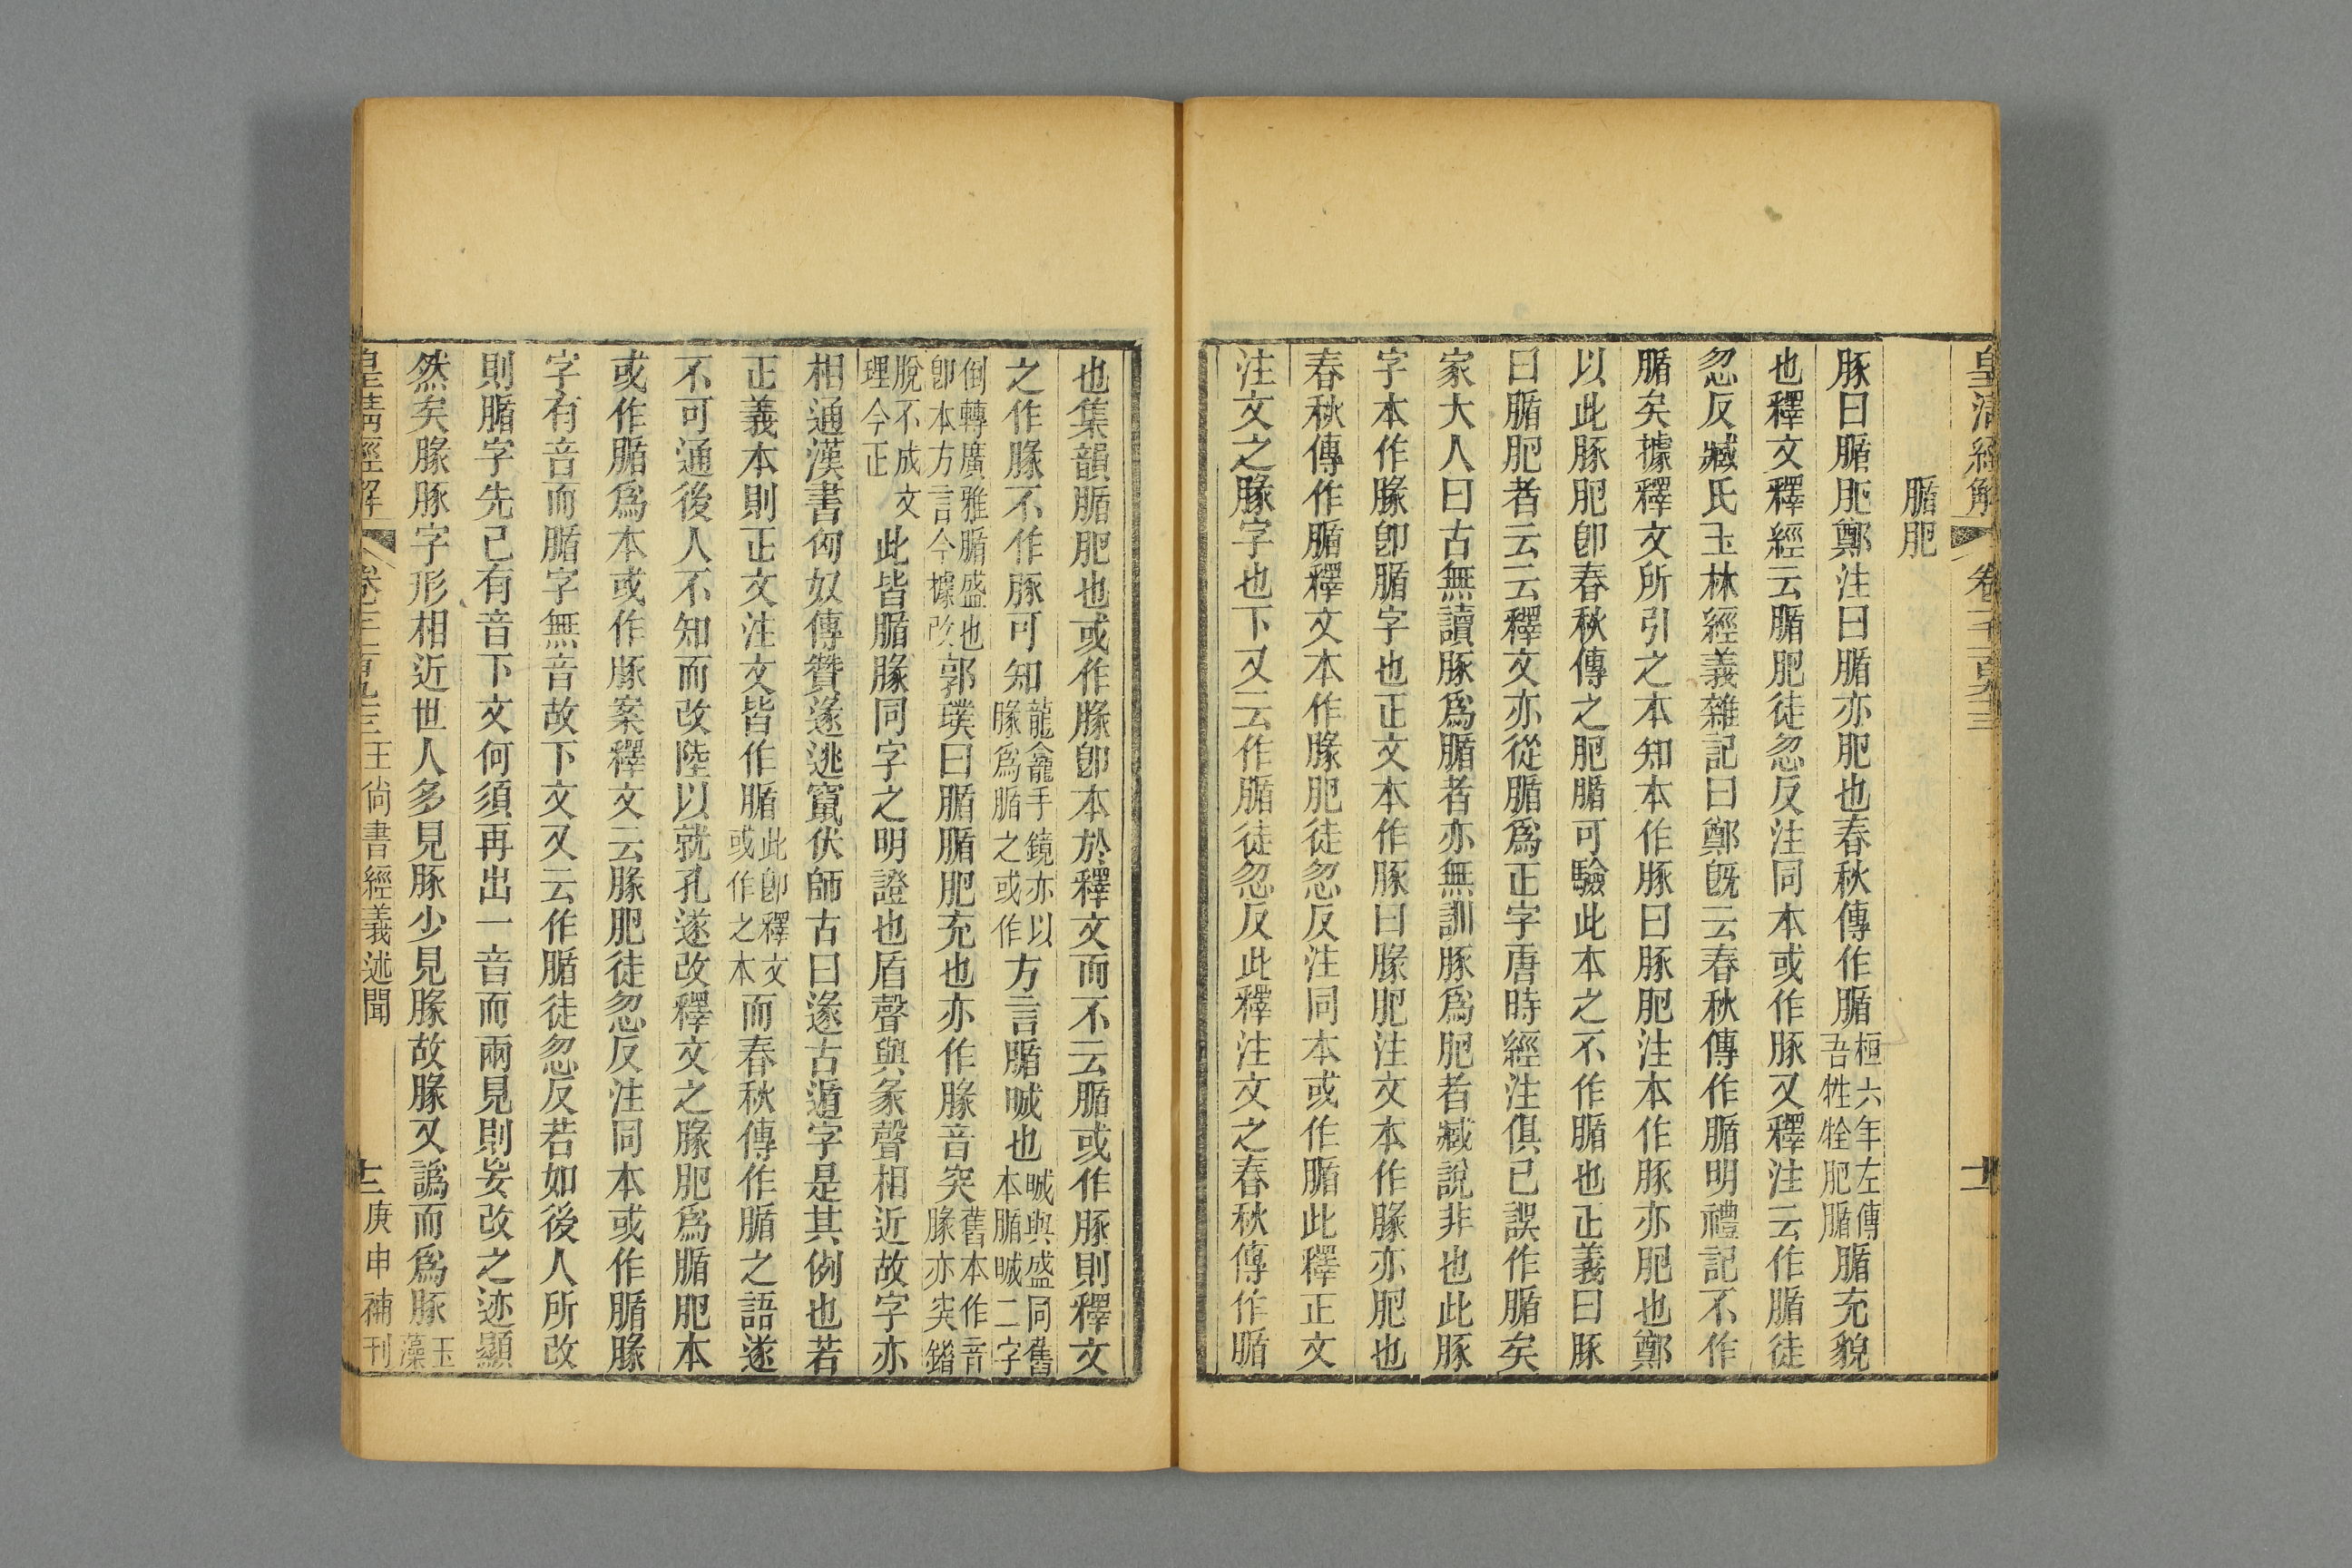 皇清經解 卷一千一百九十三
腯肥
豚曰腯肥鄭注曰腯亦肥也春秋傳作腯桓六年左傳吾牲牷肥腯腯充貌
也釋文釋經云腯肥徒忽反注同本或作豚又釋注云作腯徒
忽反臧氏玉林經義雜記曰鄭旣云春秋傳作腯明禮記不作
腯矣據釋文所引之本知本作豚曰豚肥注本作豚亦肥也鄭
以此豚肥卽春秋傳之肥腯可驗此本之不作腯也正義曰豚
曰腯肥者云云釋文亦從腯爲正字唐時經注俱已誤作腯矣
家大人曰古無讀豚爲腯者亦無訓豚爲肥者臧說非也此豚
字本作腞卽腯字也正文本作豚曰腞肥注文本作腞亦肥也
春秋傳作腯釋文本作腞肥徒忽反注同本或作腯此釋正文
注文之腞字也下又云作腯徒忽反此釋注文之春秋傳作腯
也集韻腯肥也或作腞卽本於釋文而不云腯或作豚則釋文
之作腞不作豚可知龍龕手鏡亦以腞爲腯之或作方言腯晠也晠與盛同舊本腯晠二字
倒轉廣雅腯盛也卽本方言今據改郭璞曰腯腯肥充也亦作腞音突舊本作音腞亦突錯
脫不成文理今正此皆腯腞同字之明證也盾聲與彖聲相近故字亦
相通漢書匈奴傳贊遂逃竄伏師古曰遂古遁字是其例也若
正義本則正文注文皆作腯此卽釋文或作之本而春秋傳作腯之語遂
不可通後人不知而改陸以就孔遂改釋文之腞肥爲腯肥本
或作腯爲本或作豚案釋文云腞肥徒忽反注同本或作腯腞
字有音而腯字無音故下文又云作腯徒忽反若如後人所改
則腯字先已有音下文何須再出一音而兩見則妄改之迹顯
然矣腞豚字形相近世人多見豚少見腞故腞又譌而爲豚玉藻
皇淸經解 卷一千一百九十三 王尚書經義述聞 十二 庚申補刊